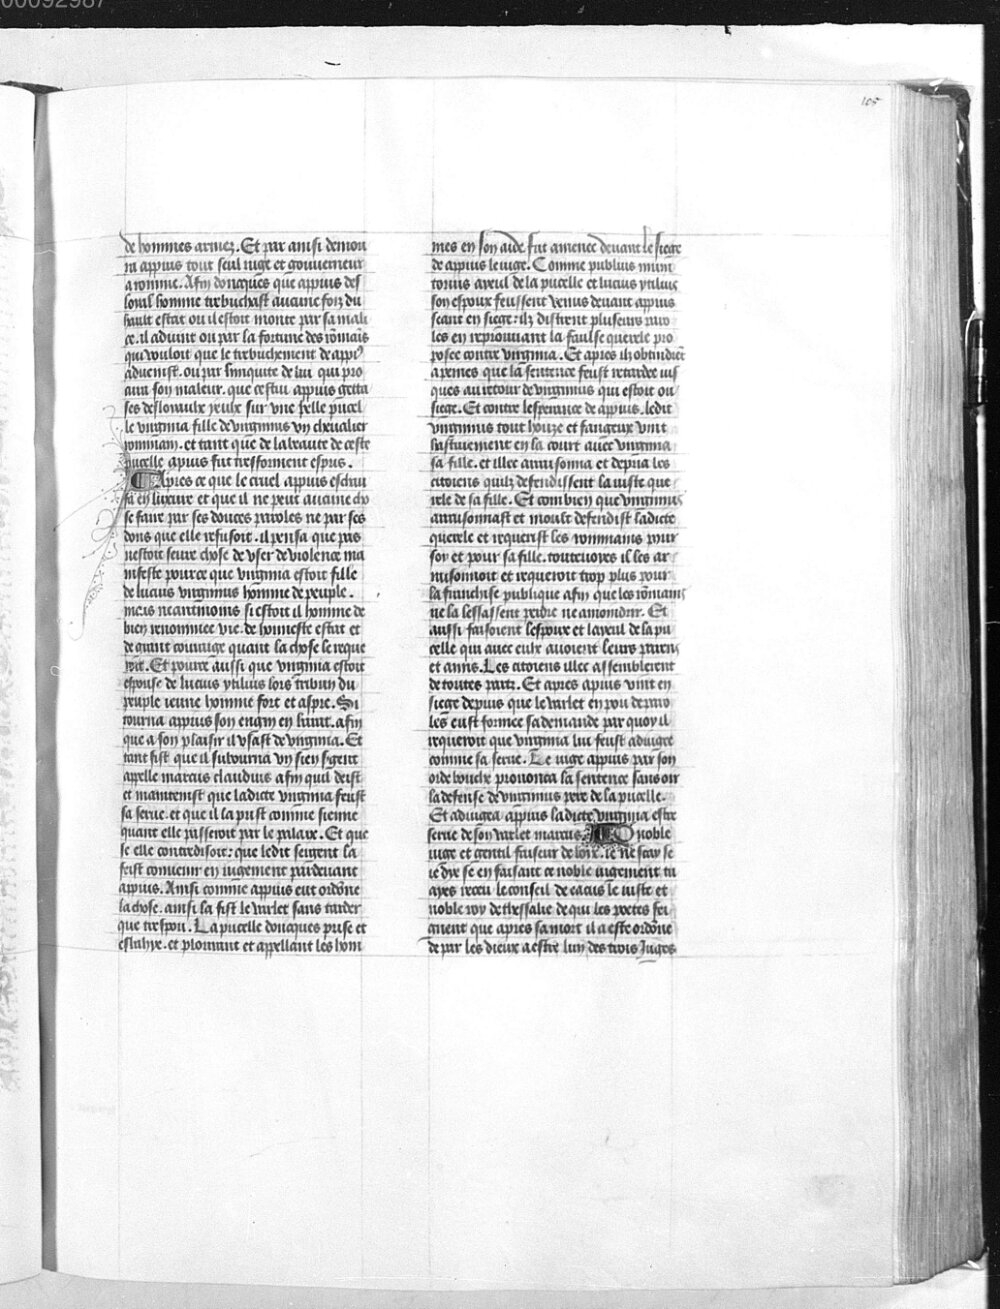 00092987
105
de hommes armez. Et par ainsi demou
ra appius tout seul iuge et gouuerneur
a romme. Afin doncques que appius des
loial homme trebuchast aucune foiz du
hault estat ou il estoit monte par sa mali
ce. il aduint ou par la fortune des romais
qui vouloit que le trebuchement de appi9
aduenist. ou par liniquite de lui qui pro
cura son maleur. que cestui appuis getta
ses desloiaulx yeulx sur vne belle pucel
le virginia fille de virginius vn cheualier
rommain. et tant que de la beaute de ceste
pucelle apius fut tresforment espris.
Apres ce que le cruel appius eschau
fa en luxure et que il ne peut aucune cho
se faire par ses douces paroles ne par ses
dons que elle refusoit. il pensa que pas
nestoit seure chose de vser de violence ma
nifeste pource que virginia estoit fille
de lucius virginius homme de peuple.
mais neantmoins si estoit il homme de
bien renommee vie. de honneste estat et
de grant couraige quant la chose le reque
roit. Et pource aussi que virginia estoit
espouse de lucius ytilius lors tribun du
peuple ieune homme fort et aspre. Si
tourna appius son engin en barat. afin
que a son plaisir il vsast de virginia. Et
tant fist que il subourna vn sien sergent
apelle marcus claudius afin quil deist
et maintenist que ladicte virginia feust
sa serue. et que il la prist comme sienne
quant elle passeroit par le palaix. Et que
se elle contredisoit: que ledit sergent la
feist conuenir en iugement pardeuant
appius. Ainsi comme appius eut ordone
la chose. ainsi la fist le varlet sans tarder
que trespou. La pucelle doncques prise et
esbahye. et plourant et appellant les hom
mes en son aide fut amenee deuant le siege
de appius le iuge. Comme publius mun
torius ayeul de la pucelle et lucius ytilius
son espoux feussent venus deuant appius
seant en siege: ilz distrent plusieurs paro
les en reprouuant la faulse querele pro
posee contre virginia. Et apres ilz obtindret
a peines que la sentence feust retardee ius
ques au retour de virginius qui estoit ou
siege. Et contre lesperance de appius. ledit
virginius tout houze et fangeux vint
hastiuement en la court auec virginia
sa fille. et illec araisonna et depria les
citoiens quilz defendissent la iuste que
rele de sa fille. Et combien que virginius
araisonnast et moult defendist ladicte
querele et requerist les rommains pour
soy et pour sa fille. toutesuoies il les ar
raisonnoit et requeroit trop plus pour
la franchise publique afin que les romains
ne la lessassent perdre ne amoindrir. Et
aussi faisoient lespoux et layeul de la pu
celle qui auec eulx auoient leurs parens
et amis. Les citoiens illec assemblerent
de toutes pars. Et apres apius vint en
siege depuis que le varlet en pou de paro
les eust formee sa demande par quoy il
requeroit que virginia lui feust adiugee
comme sa serue. Le iuge appius par son
orde bouche prononca la sentence sans oir
la defense de virginius pere de la pucelle.
Et adiugea appius ladicte virginia estre
serue de son varlet marcus. O noble
iuge et gentil faiseur de loix. ie ne scay se
ie dye se en faisant ce noble iugement tu
ayes receu le conseil de eacus le iuste et
noble roy de thessalie de qui les poetes fei
gnent que apres sa mort il a este ordone
de par les dieux a estre lun des trois Iuges